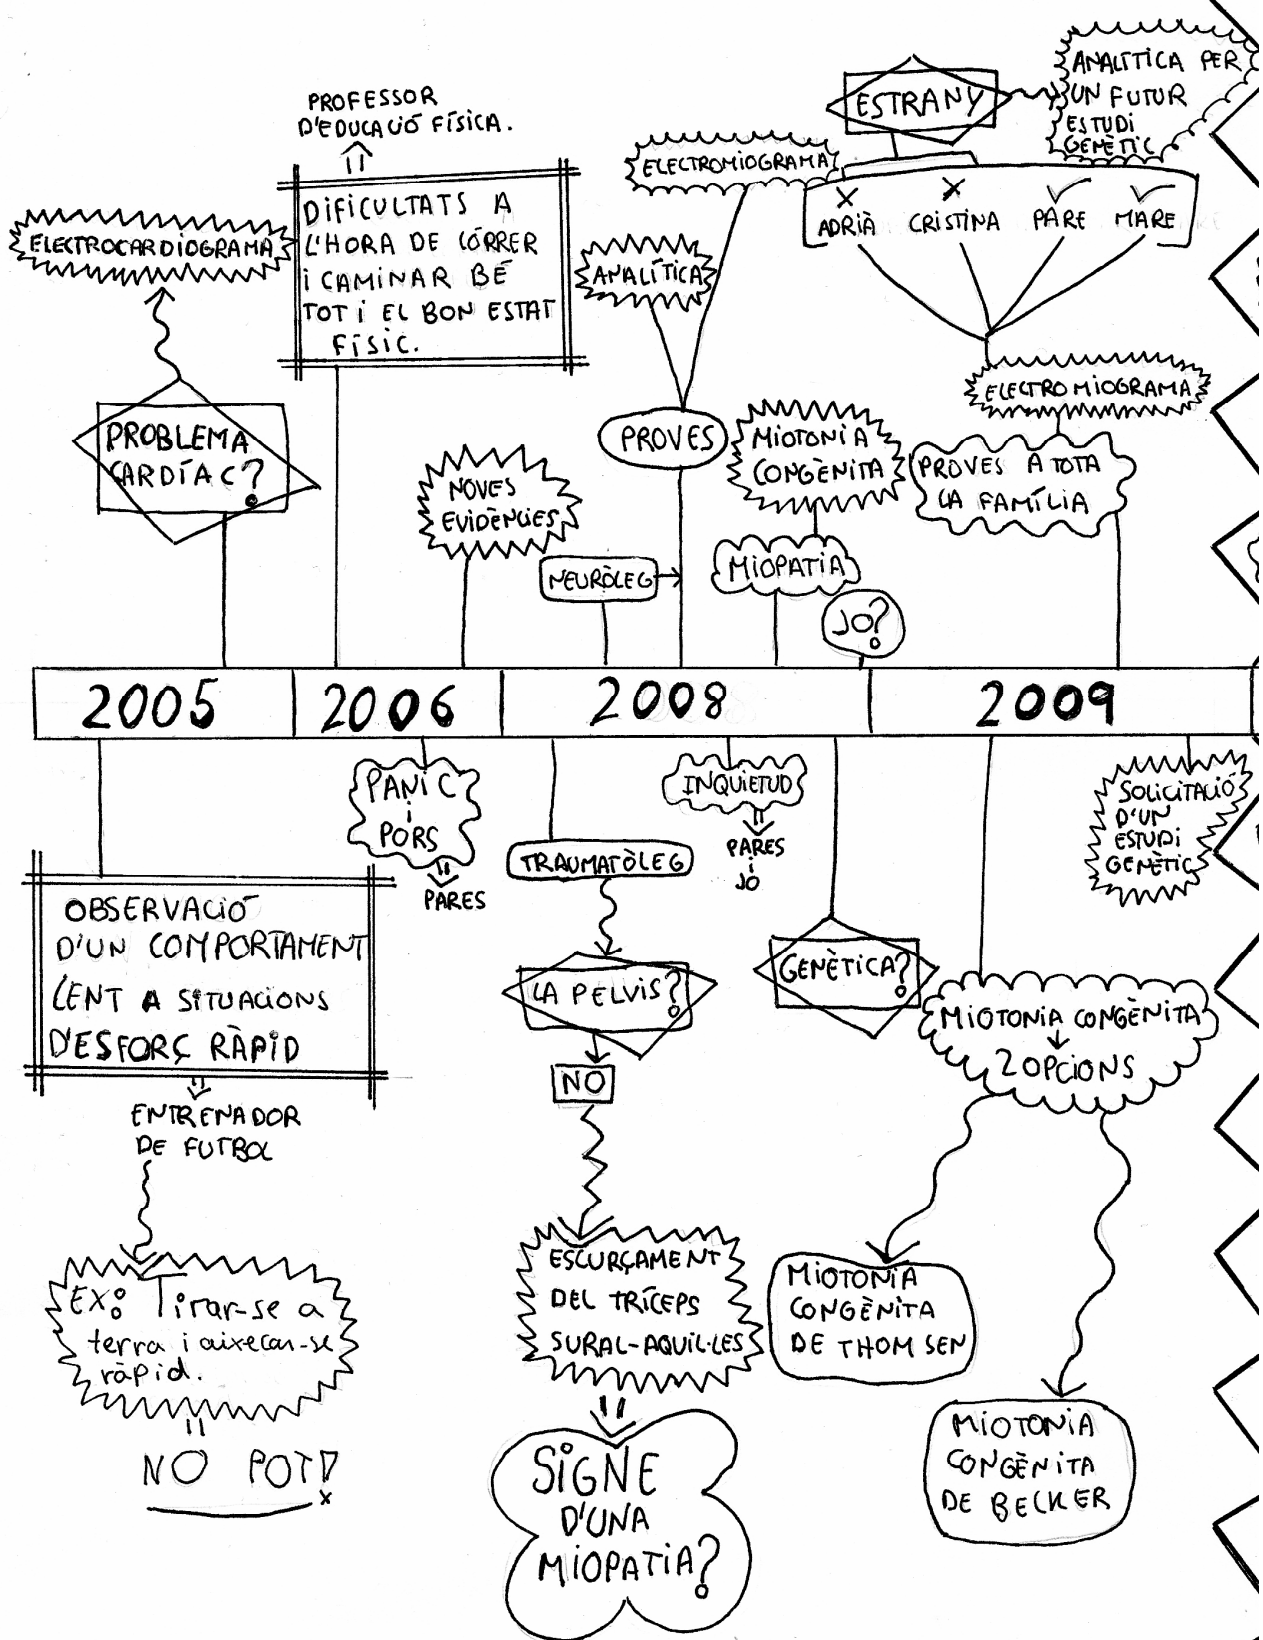 PROFESSOR
D'EDUCACIÓ FÍSICA.
DIFICULTATS A
L'HORA DE CÓRRER
I CAMINAR BÉ
TOT I EL BON ESTAT
FÍSIC.
ELECTROCARDIOGRAMA
PROBLEMA
CARDÍAC?
NOVES
EVIDÈNCIES
ELECTROMIOGRAMA
ANALÍTICA
PROVES
NEURÒLEG
MIOTONIA
CONGÈNITA
MIOPATIA
JO?
ESTRANY
ANALÍTICA PER
UN FUTUR
ESTUDI
GENÈTIC
ADRIÀ CRISTINA PARE MARE
ELECTROMIOGRAMA
PROVES A TOTA
LA FAMÍLIA
2005 2006 2008 2009
OBSERVACIÓ
D'UN COMPORTAMENT
LENT A SITUACIONS
D'ESFORÇ RÀPID
ENTRENADOR
DE FUTBOL
EX: Tirar-se a
terra i aixecar-se
ràpid.
NO POT!
PANIC
i
PORS
PARES
TRAUMATÒLEG
LA PELVIS?
NO
ESCURÇAMENT
DEL TRÍCEPS
SURAL-AQUIL·LES
SIGNE
D'UNA
MIOPATIA?
INQUIETUD
PARES
i
JO
GENÈTICA?
MIOTONIA CONGÈNITA
2 OPCIONS
MIOTONIA
CONGÈNITA
DE THOMSEN
MIOTONIA
CONGÈNITA
DE BECKER
SOLICITACIÓ
D'UN
ESTUDI
GENÈTIC